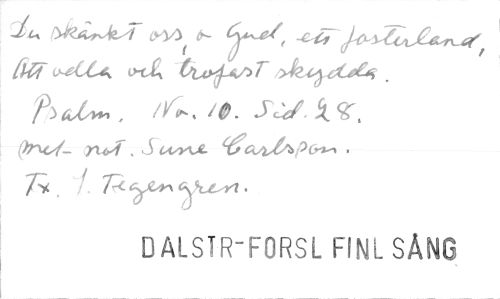 Du skänkt oss, o Gud, ett fosterland,
Att odla och trofast skydda.
Psalm. No. 10. Sid. 28.
mel- not. Sune Carlsson.
Tx. J. Tegengren.
DALSTR-FORSL FINL SÅNG